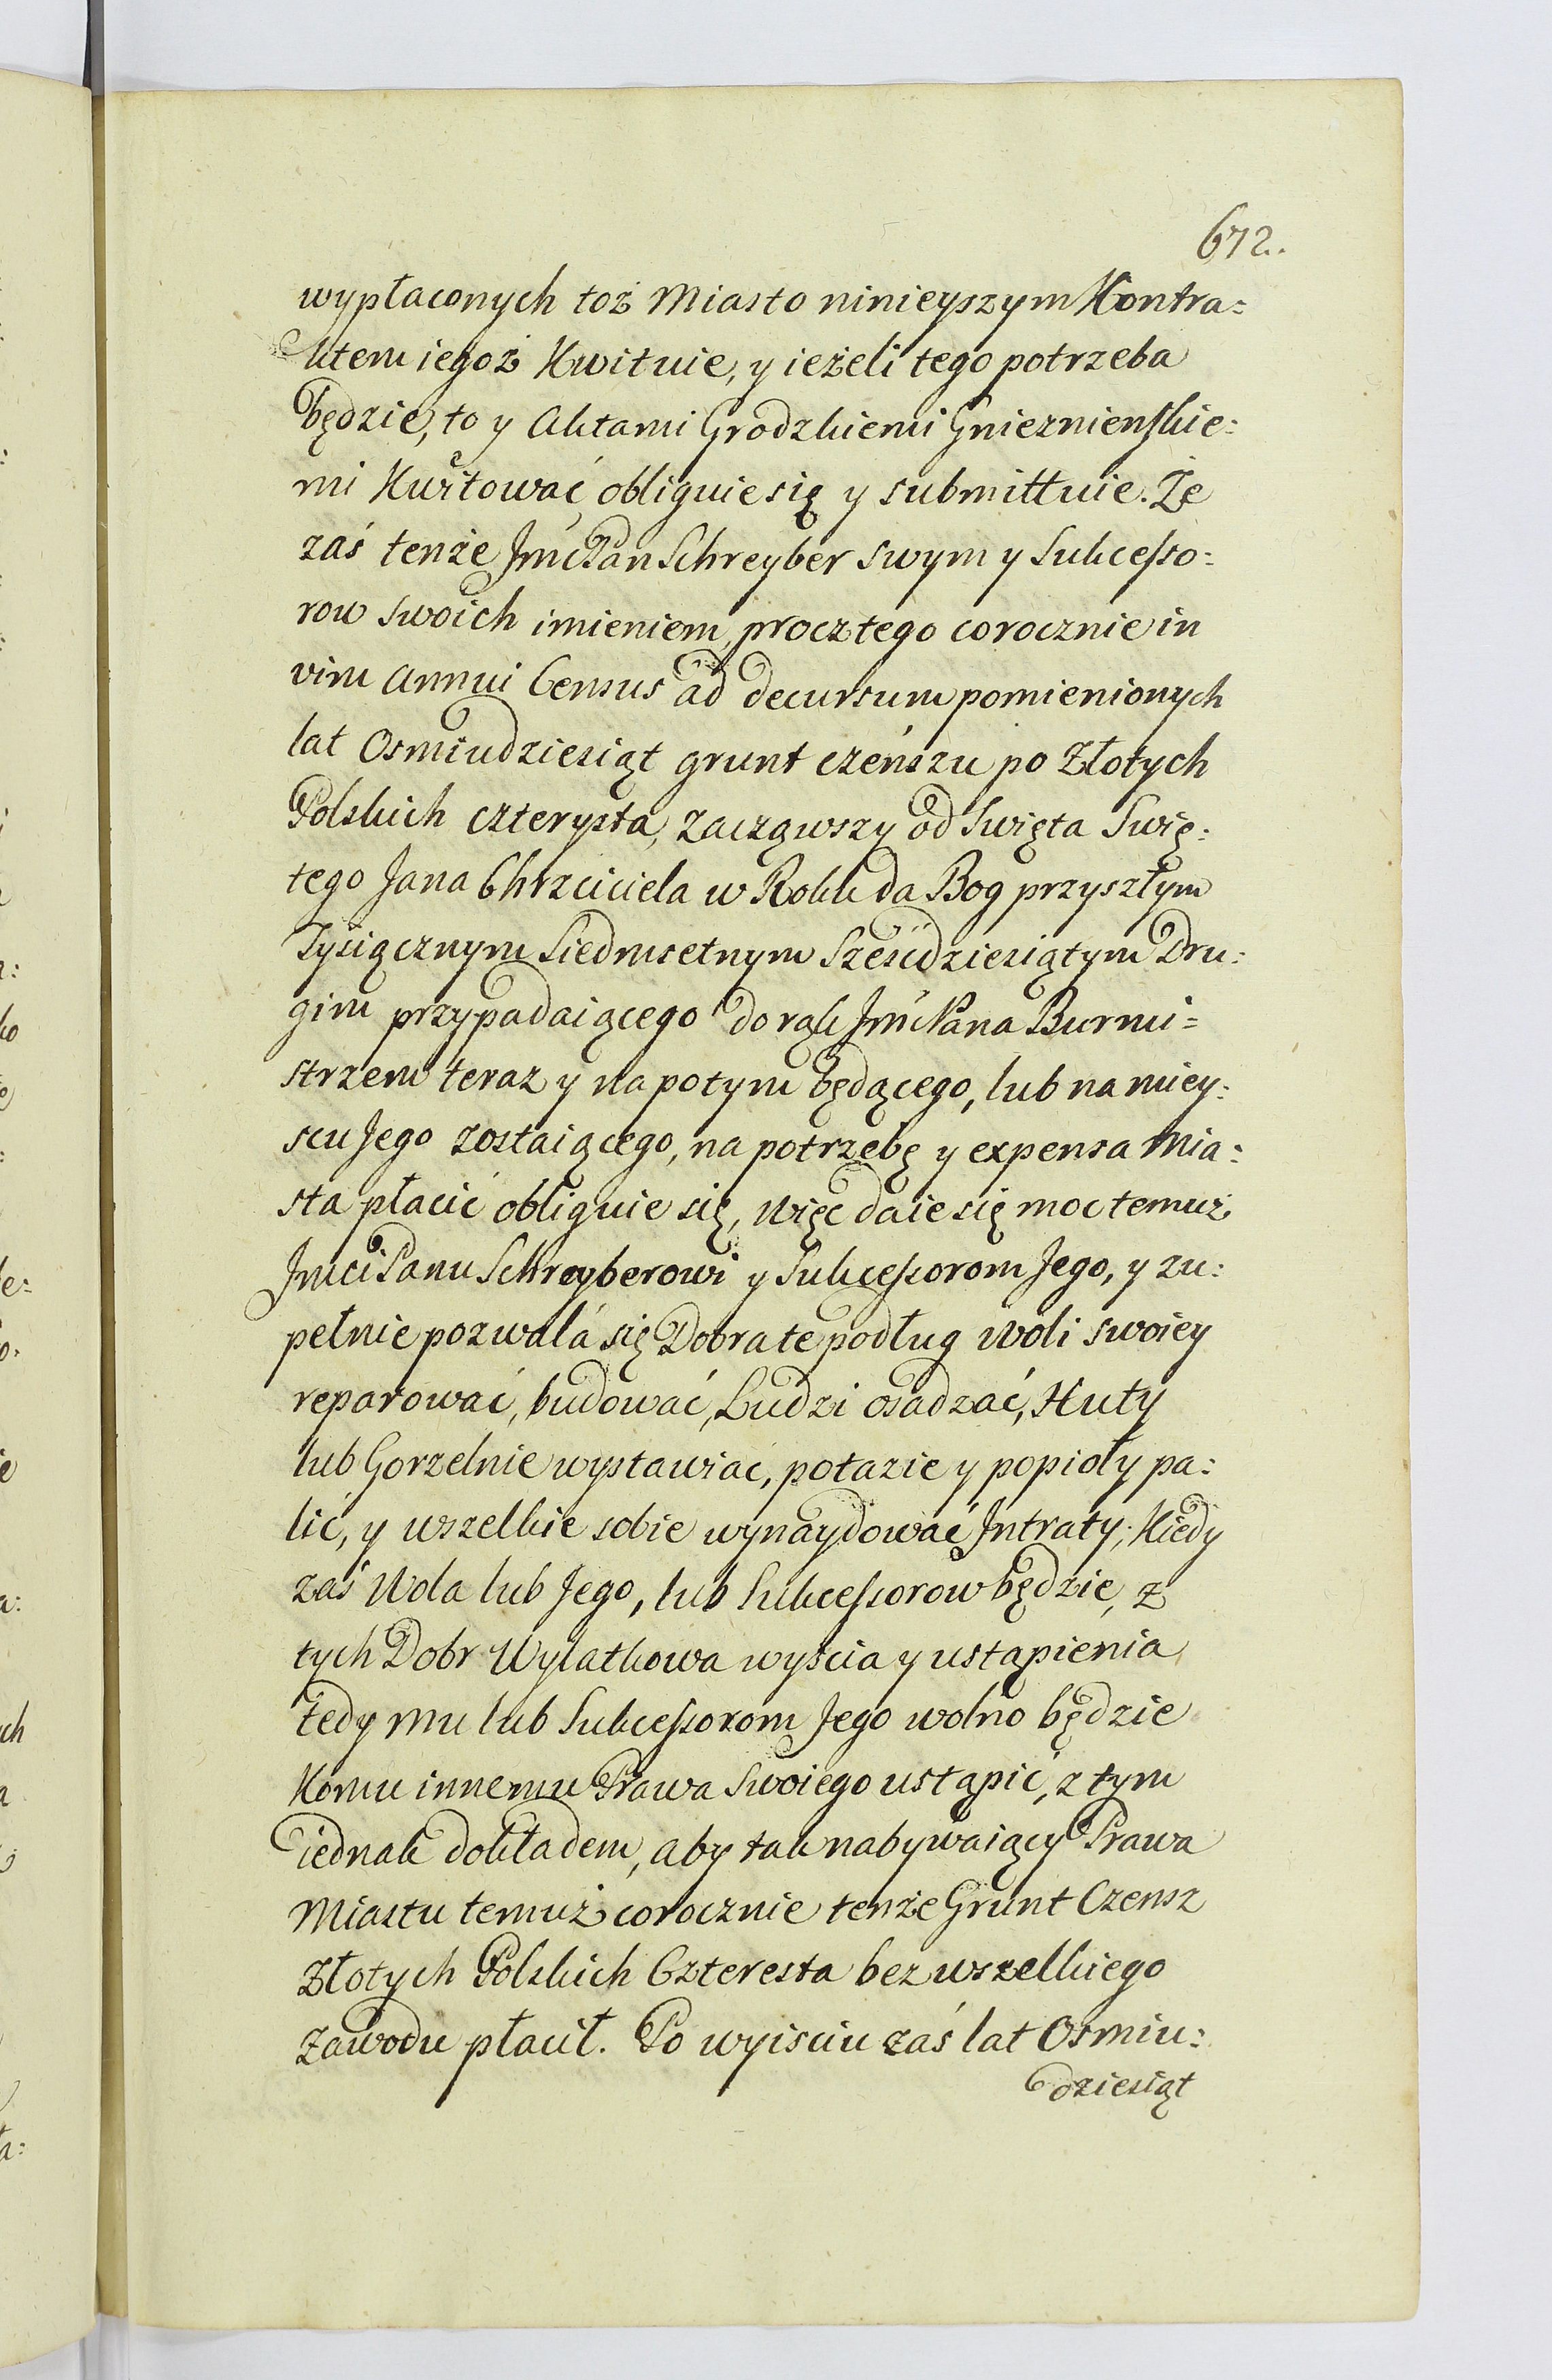 672.
wypłaconych toż Miasto ninieyszym Kontra=
ktem iegoż Kwituie, y ieżeli tego potrzeba
będzie, to y Aktami Grodzkiemi Gnieznienskie:
mi Kwitować obliguie się y submittuie. Że
zaś tenże Jmć Pan Schreyber swym y Sukcesso:
row swoich imieniem, procz tego corocznie in
vim annui Census ad decursum pomienionych
lat Osmiudziesiąt grunt czeńszu po Złotych
Polskich czterysta, zacząwszy od Swięta Swię:
tego Jana Chrzciciela w Roku da Bog przyszłym
Tysiącznym Siedmsetnym Sześćdziesiątym Dru:
gim przypadaiącego do rąk Jmć Pana Burmi=
strzem teraz y na potym będącego, lub na miey:
scu Jego zostaiącego, na potrzebę y expensa Mia:
sta płacić obliguie się, Więc daie się moc temuż
Jmci Panu Schreyberowi y Sukcessorom Jego, y zu:
pełnie pozwala się Dobra te podług woli swoiey
reparować, budować, Ludzi osadzać, Huty
lub Gorzelnie wystawiać, potazie y popioły pa:
lić, y wszelkie sobie wynaydować Intraty; Kiedy
zaś Wola lub Jego, lub Sukcessorow będzie, z
tych Dobr Wylatkowa wyścia y ustąpienia
tedy mu lub Sukcessorom Jego wolno będzie
Komu innemu Prawa swoiego ustąpić, z tym
iednak dokładem, aby tak nabywaiący Prawa
Miastu temuż corocznie tenże Grunt Czensz
Złotych Polskich Czteresta bez wszelkiego
zawodu płacił. Po wyisciu zaś lat Osmiu:
dziesiąt